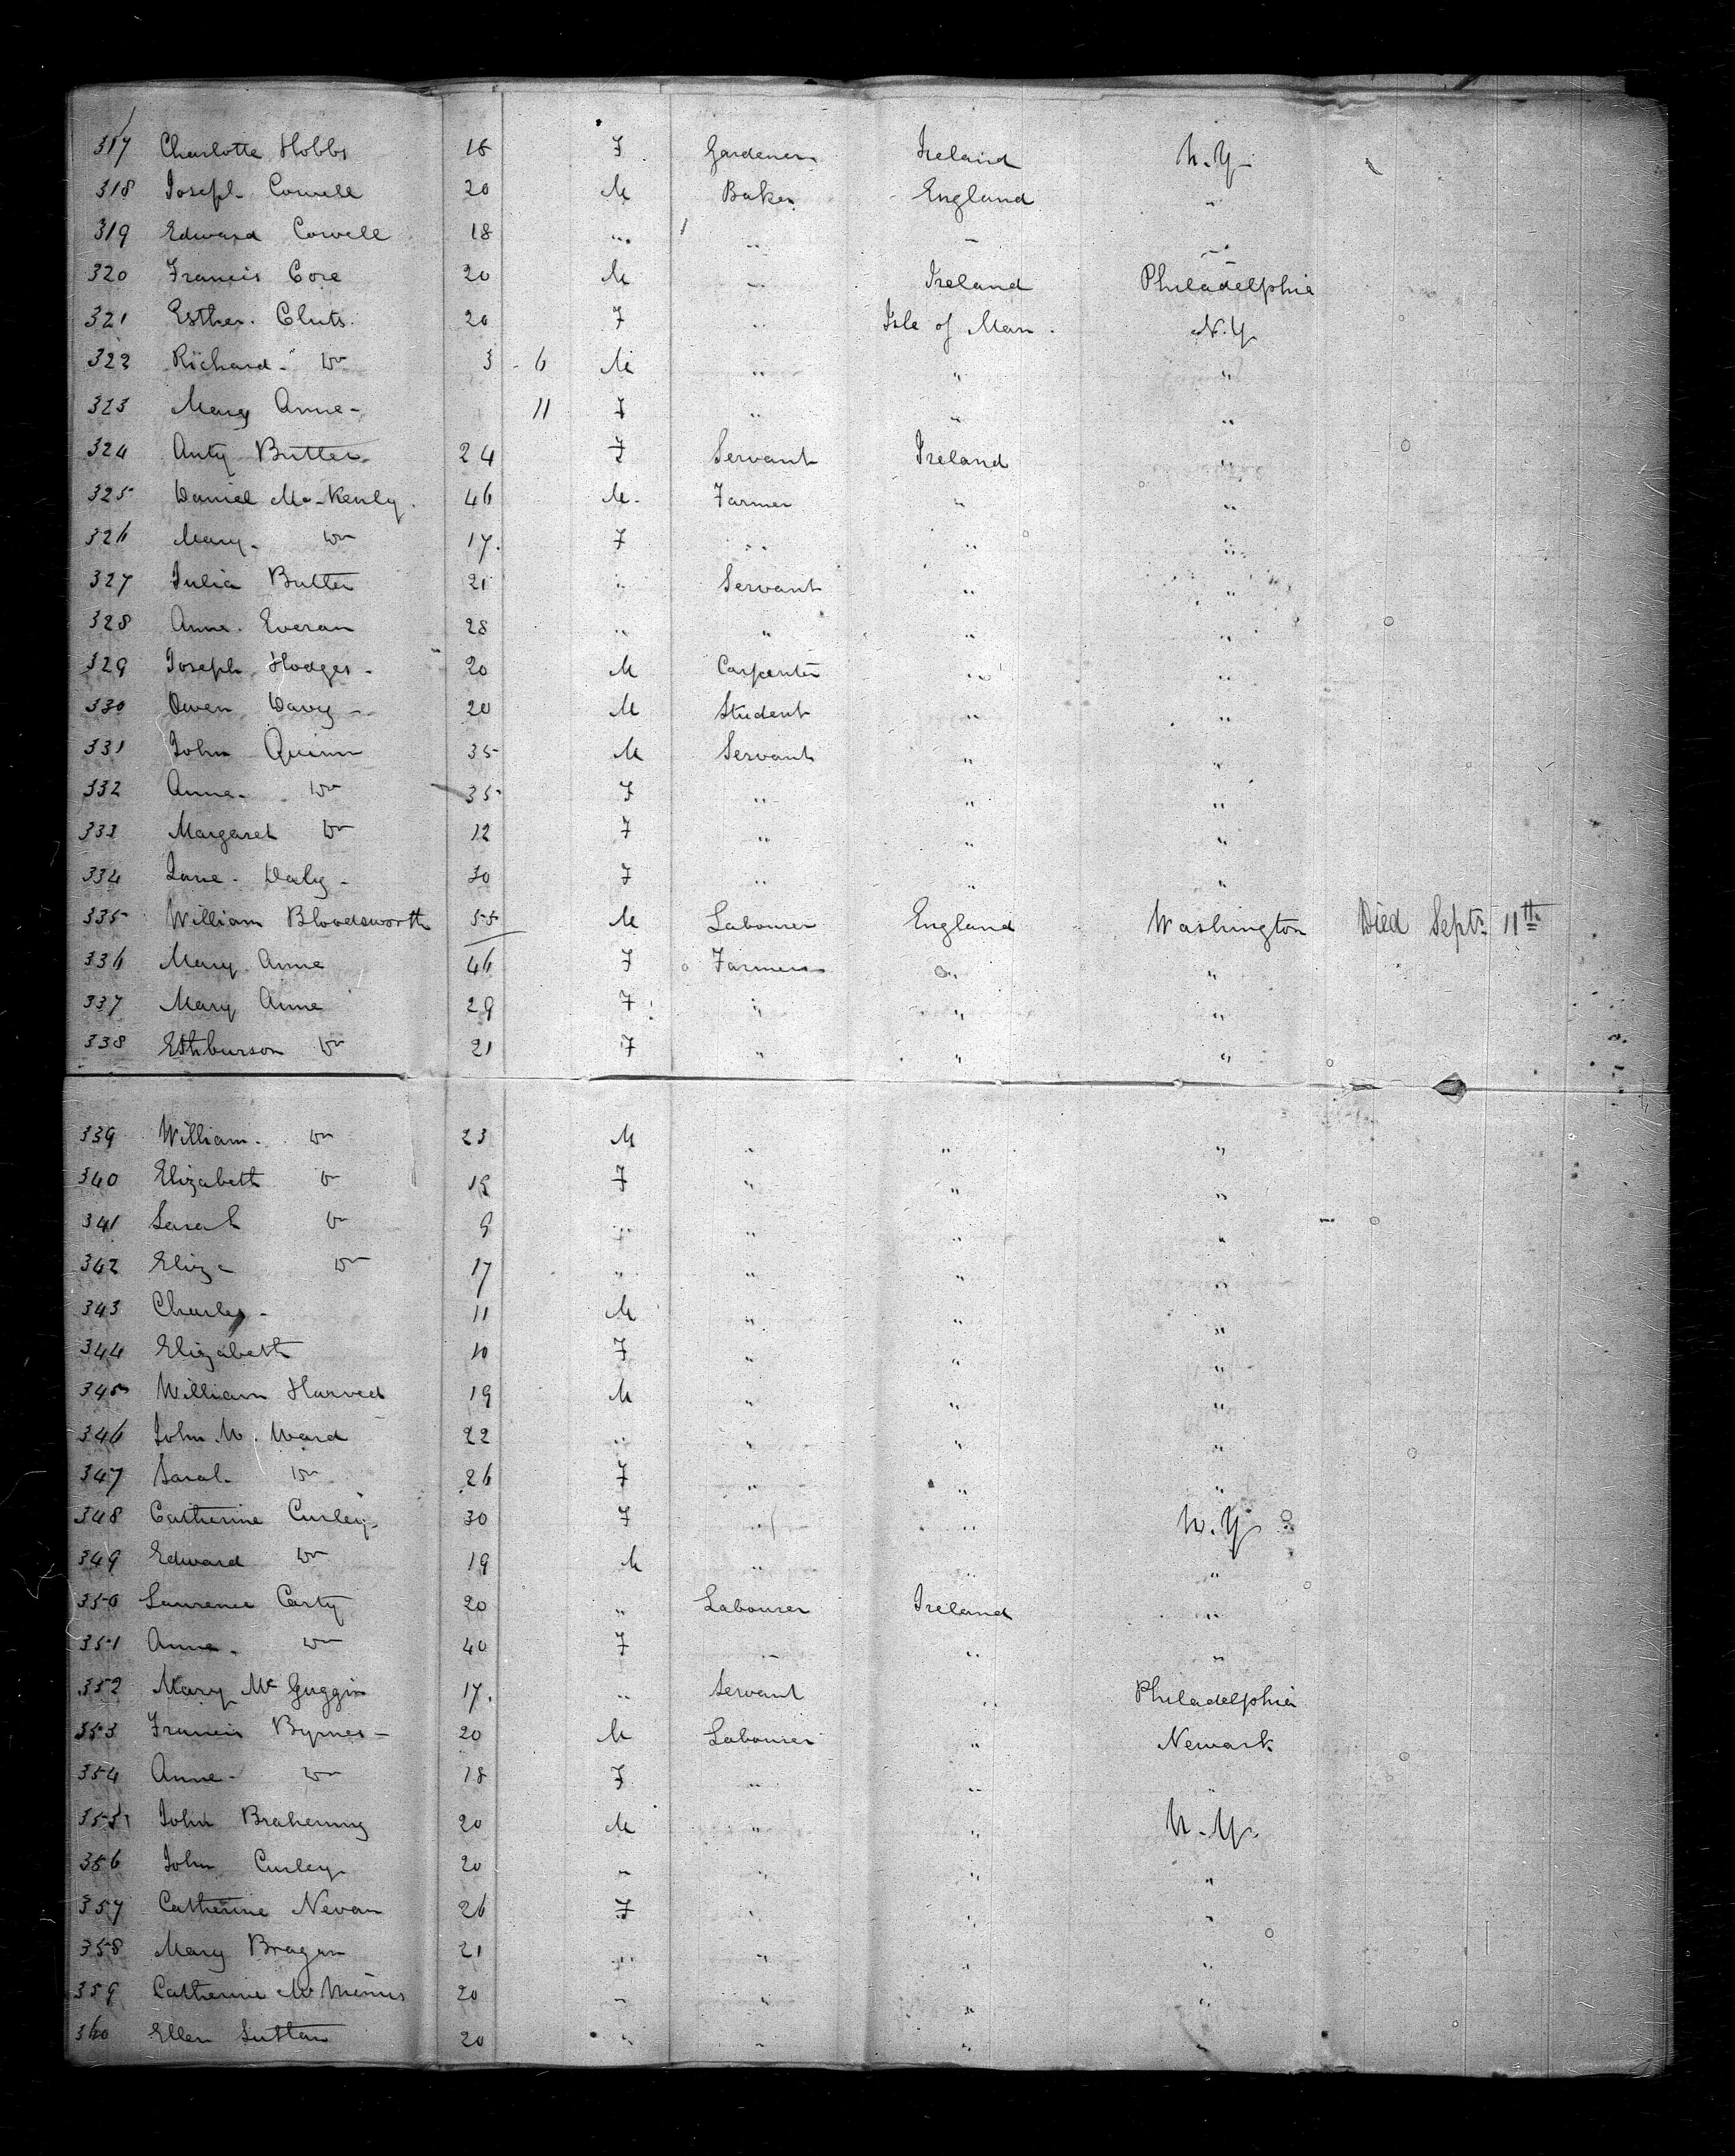 317 Charlotte Hobbs 18 F Gardener Ireland N.Y.
318 Joseph Cowell 20 M Baker England "
319 Edward Cowell 18 " " " "
320 Francis Core 20 M " Ireland Philadelphia
321 Esther Cluts 20 F " Isle of Man N.Y.
322 Richard Do 3 - 6 M " " "
323 Mary Anne - 11 F " " "
324 Anty Butter 24 F Servant Ireland "
325 Daniel Mc-Kenly 46 M Farmer " "
326 Mary Do 17 F " " "
327 Julia Butter 21 " Servant " "
328 Anne Everan 28 " " " "
329 Joseph Hodges - 20 M Carpenter " "
330 Owen Davy - 20 M Student " "
331 John Quinn 35 M Servant " "
332 Anne Do 35 F " " "
333 Margaret Do 12 F " " "
334 Jane Daly - 30 F " " "
335 William Bloodsworth 55 M Labourer England Washington Died Sept. 11th
336 Mary Anne 46 F Farmers " "
337 Mary Anne 29 F " " "
338 Do 21 F " " "
339 William Do 23 M " " "
340 Elizabeth Do 19 F " " "
341 Sarah Do 9 " " " "
342 Eliza Do 17 " " " "
343 Charley - 11 M " " "
344 Elizabeth 10 F " " "
345 William Harved 19 M " " "
346 John W. Ward 22 " " " "
347 Sarah Do 26 F " " "
348 Catherine Curley 30 F " " N.Y.
349 Edward Do 19 M " " "
350 Laurence Carty 20 " Labourer Ireland "
351 Anne Do 40 F " " "
352 Mary Mc Guggin 17 " Servant " Philadelphia
353 Francis Byrnes - 20 M Labourer " Newark
354 Anne - Do 18 F " " "
355 John 20 M " " N.Y.
356 John Curley 20 " " " "
357 Catherine Nevan 26 F " " "
358 Mary Bragan 21 " " " "
359 Catherine Mc Menus 20 " " " "
360 Ellen Sutton 20 " " " "